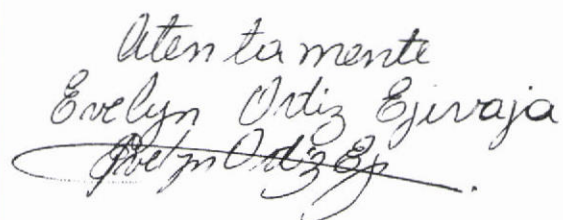 Atentamente
Evelyn Ortiz Ejivaja
Evelyn Ortiz Ej